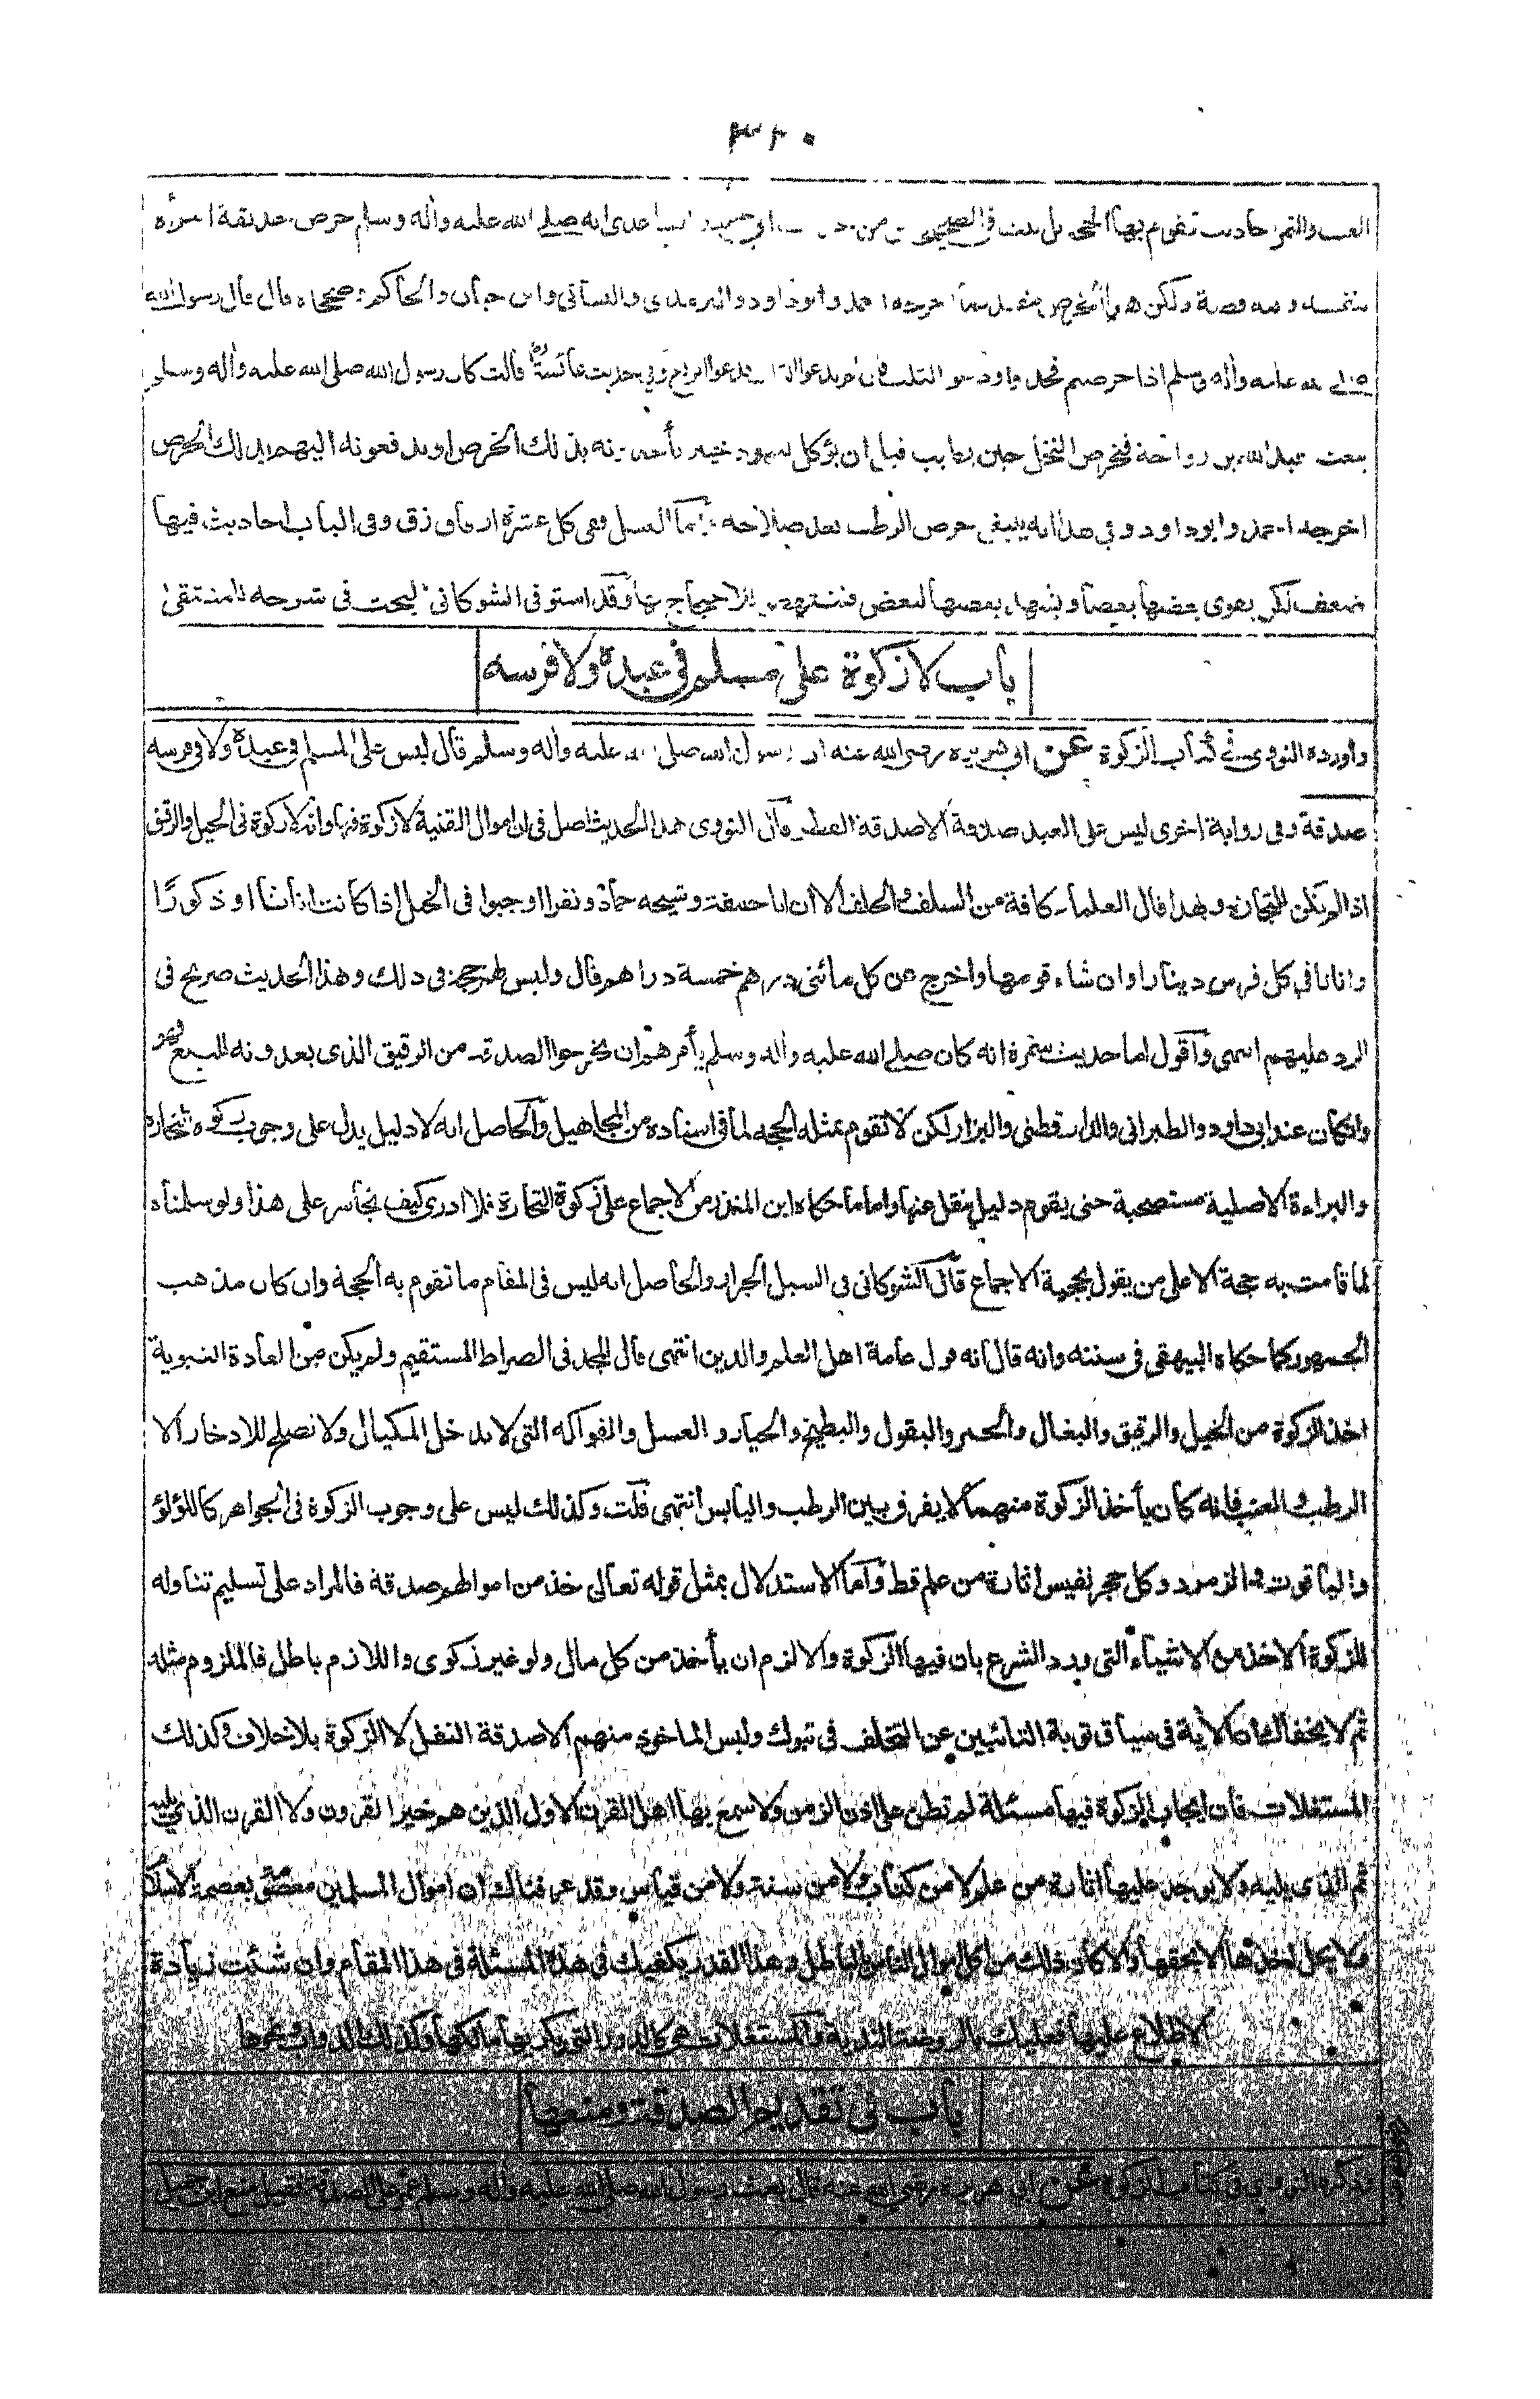 ٣٢٠
العنب والتمر احاديث تقوم بها الحجة في الصحيحين من حديث ابي حميد الساعدي انه صلى الله عليه واٰله وسلم خرص حديقة امرأة
بنفسه وفيه قصة ولكن هذا الخرص اخرجه احمد وابوداود والترمذى والنسائى وابن حبان والحاكم وصححاه قال قال رسول الله
صلى الله عليه واٰله وسلم اذا خرصتم فخذوا ودعوا الثلث فان لم تدعوا الثلث فدعوا الربع وفى حديث عائشة رض قالت كان رسول الله صلى الله عليه واٰله وسلم
يبعث عبد الله بن رواحة فيخرص النخل حين يطيب قبل ان يؤكل يهود خيبر يأخذونه بذلك الخرص او يدفعونه اليهم بذلك الخرص
اخرجه احمد وابوداود وفى هذا انه ينبغى خرص الرطب بعد صلاحه واما العسل ففى كل عشرة ازقاق زق وفى الباب احاديث فيها
ضعف لكن يقوى بعضها بعضا ويشهد بعضها لبعض فتنتهض للاحتجاج بها وقد استوفى الشوكانى البحث فى شرحه للمنتقى
باب لا زكوة على مسلم فى عبده ولا فرسه
واورده النووى فى كتاب الزكوة عن ابى هريرة رضى الله عنه ان رسول الله صلى الله عليه واٰله وسلم قال ليس على المسلم فى عبده ولا فى فرسه
صدقة وفى رواية اخرى ليس على العبد صدقة الا صدقة الفطر قال النووى هذا الحديث اصل فى ان اموال القنية لا زكوة فيها وانه لا زكوة فى الخيل والرقيق
اذا لم تكن للتجارة وبهذا قال العلماء كافة من السلف والخلف الا ان ابا حنيفة وشيخه حمادا ونفرا اوجبوا فى الخيل اذا كانت اناثا او ذكورًا
واناثا فى كل فرس دينارا وان شاء قومها واخرج عن كل مائتى درهم خمسة دراهم قال وليس لهم حجة فى ذلك وهذا الحديث صريح فى
الرد عليهم انتهى واقول اما حديث سمرة انه كان صلى الله عليه واٰله وسلم يأمرهم ان يخرجوا الصدقة من الرقيق الذى يعدونه للبيع فهو
وان كان عند ابى داود والطبرانى والدارقطنى والبزار لكن لا تقوم بمثله الحجة لما فى اسناده من المجاهيل والحاصل انه لا دليل يدل على وجوب زكوة التجارة
والبراءة الاصلية مستصحبة حتى يقوم دليل ينقل عنها واما ما حكاه ابن المنذر من الاجماع على زكوة التجارة فلا ادرى كيف تجاسر على هذا ولو سلمناه
لما قامت به حجة الا على من يقول بحجية الاجماع قال الشوكانى فى السيل الجرار والحاصل انه ليس فى المقام ما تقوم به الحجة وان كان مذهب
الجمهور كما حكاه البيهقى فى سننه وانه قال انه قول عامة اهل العلم والدين انتهى قال المجد فى الصراط المستقيم ولم يكن من العادة النبوية
اخذ الزكوة من الخيل والرقيق والبغال والحمر والبقول والبطيخ والخيار والعسل والفواكه التى لا تدخل المكيال ولا تصلح للادخار الا
الرطب والعنب فانه كان يأخذ الزكوة منهما لا يفرق بين الرطب واليابس انتهى قلت وكذلك ليس على وجوب الزكوة فى الجواهر كاللؤلؤ
والياقوت والزمرد وكل حجر نفيس اثارة من علم قط واما الاستدلال بمثل قوله تعالى خذ من اموالهم صدقة فالمراد على تسليم تناوله
للزكوة الاخذ من الاشياء التى ورد الشرع بان فيها الزكوة والا لزم ان يأخذ من كل مال ولو غير زكوى واللازم باطل فالملزوم مثله
ثم لا يخفاك ان الاية فى سياق توبة التائبين عن التخلف فى تبوك وليس الماخوذ منهم الا صدقة النفل لا الزكوة بلا خلاف وكذلك
المستغلات فان ايجاب الزكوة فيها مسئلة لم تطن على اذن الزمن ولا سمع بها اهل القرن الاول الذين هم خير القرون ولا القرن الذى يليه
ثم الذى يليه ولا يوجد عليها اثارة من علم لا من كتاب ولا من سنة ولا من قياس وقد عرفناك ان اموال المسلمين معصومة بعصمة الاسلام
ولا يحل اخذها الا بحقها والا كان ذلك من اكل اموال الناس بالباطل وهذا القدر يكفيك فى هذه المسئلة فى هذا المقام وان شئت زيادة
الاطلاع عليها فعليك بالروضة الندية والمستغلات هى كالدور التى يكريها مالكها وكذلك الدواب ونحوها
باب فى تقديم الصدقة ومنعها
وذكره النووى فى كتاب الزكوة عن ابى هريرة رضى الله عنه قال بعث رسول الله صلى الله عليه واٰله وسلم عمر على الصدقة فقيل منع ابن جميل